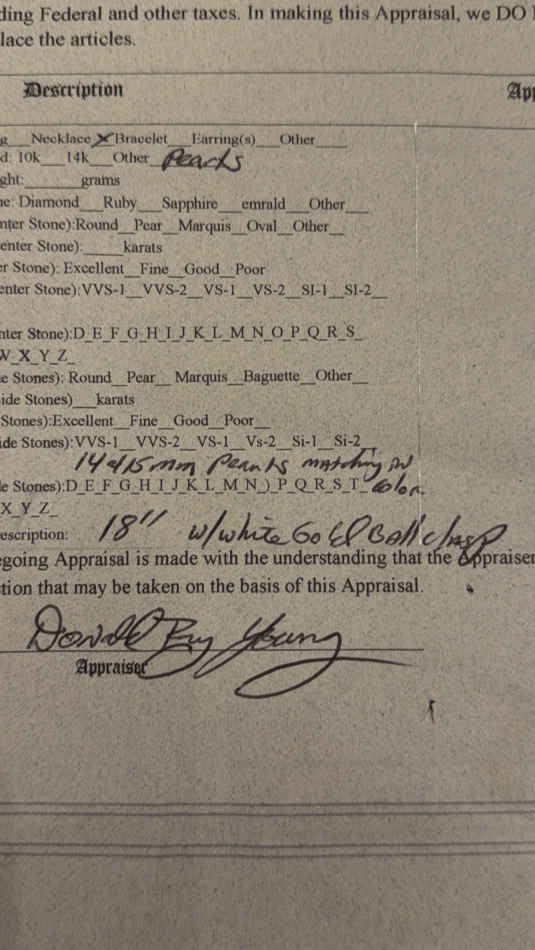 ding Federal and other taxes. In making this Appraisal, we DO
lace the articles.
Description
App
g___Necklace X Bracelet___Earring(s)___Other____
d: 10k___14k___Other Pearls
ght:_______grams
ne: Diamond___Ruby___Sapphire___emrald___Other___
nter Stone):Round__Pear__Marquis__Oval__Other__
enter Stone):_____karats
er Stone): Excellent__Fine__Good__Poor
enter Stone):VVS-1__VVS-2__VS-1__VS-2__SI-1__SI-2__
nter Stone):D_E_F_G_H_I_J_K_L_M_N_O_P_Q_R_S_
W_X_Y_Z_
e Stones): Round__Pear__ Marquis__Baguette__Other__
ide Stones)___karats
Stones):Excellent__Fine__Good__Poor__
ide Stones):VVS-1__VVS-2__VS-1__Vs-2__Si-1__Si-2__
15mm Pearls matching in
e Stones):D_E_F_G_H_I_J_K_L_M_N_)_P_Q_R_S_T_ Color.
X_Y_Z_
escription: 18" w/white Gold Ball clasp
egoing Appraisal is made with the understanding that the Appraiser
tion that may be taken on the basis of this Appraisal.
Donald Young
Appraiser